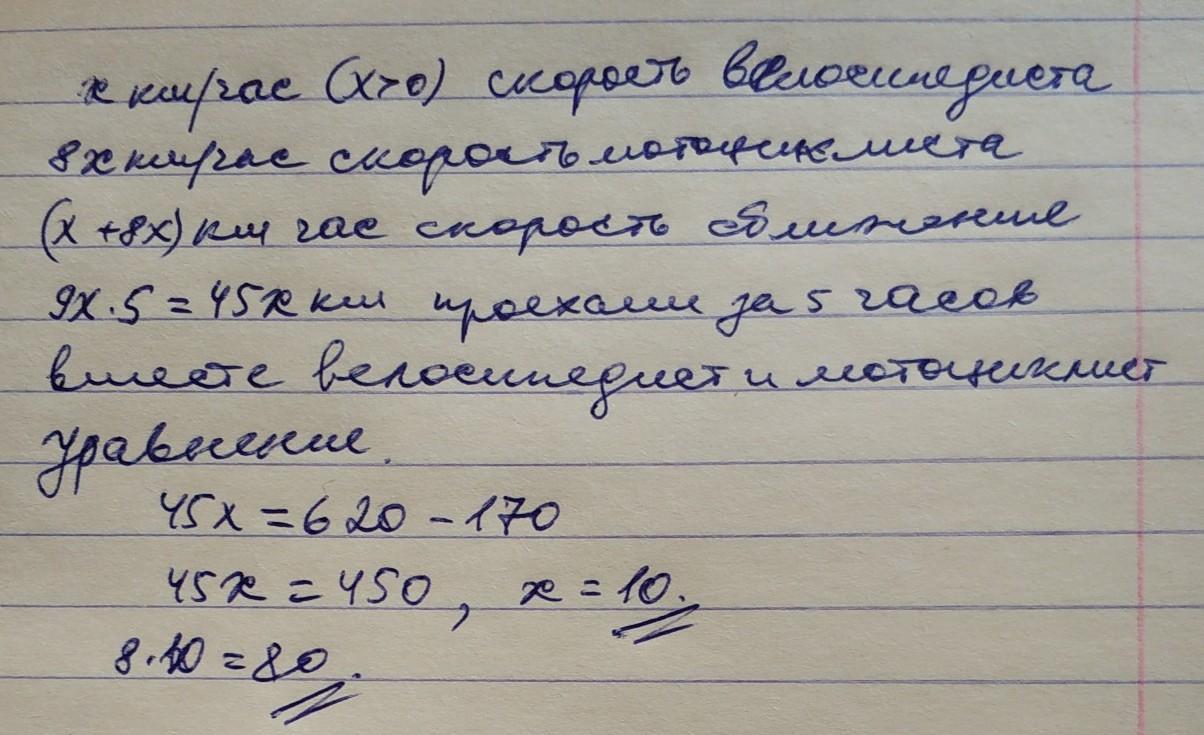 х км/час (х>0) скорость велосипедиста
8х км/час скорость мотоциклиста
(х+8х) км час скорость сближение
9х·5=45х км проехали за 5 часов
вместе велосипедист и мотоциклист
Уравнение.
45х=620-170
45х=450, х=10.
8·10=80.